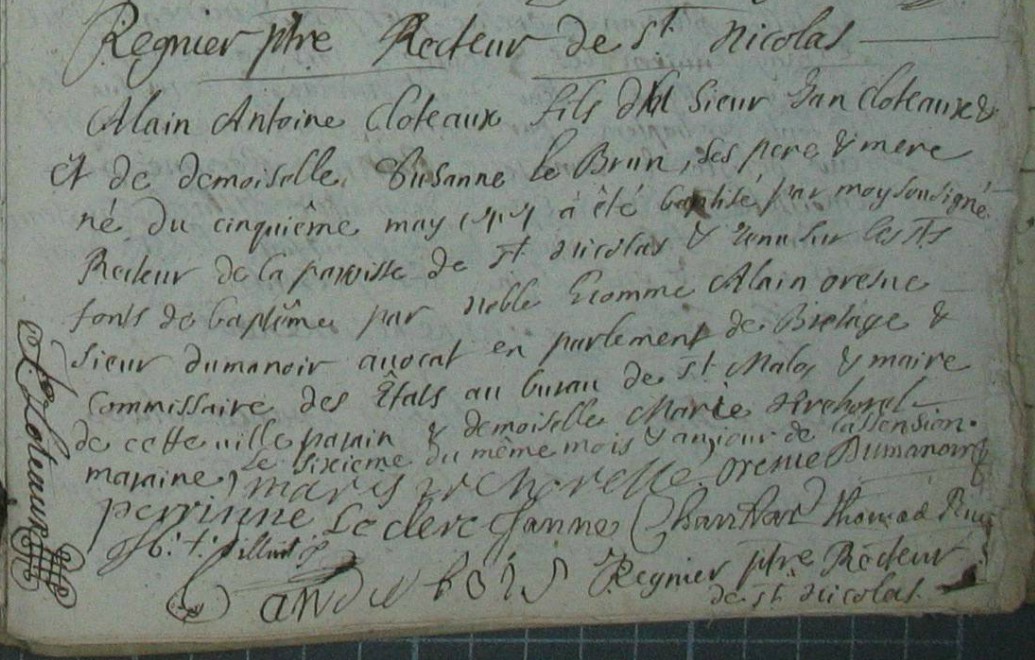 Regnier ptre Recteur de St Nicolas
Alain Antoine Cloteaux fils du Sieur Jan Cloteaux &
et de demoiselle Susanne le Brun, ses pere & mere
né du cinquième may à été baptisé par moy sousigné
Recteur de la paroisse de St Nicolas & tenu sur les sts
fonts de baptême par noble homme Alain oresve
Sieur dumanoir avocat en parlement de Bretage &
Commissaire des Êtats au bureau de St Malo, & maire
de cette ville parain & demoiselle Marie
maraine, le sixieme du même mois & an, jour de l'assension.
oresve Dumanoir
perrinne Le clerc Janne Thomas
Regnier ptre Recteur
de St Nicolas
Cloteaux